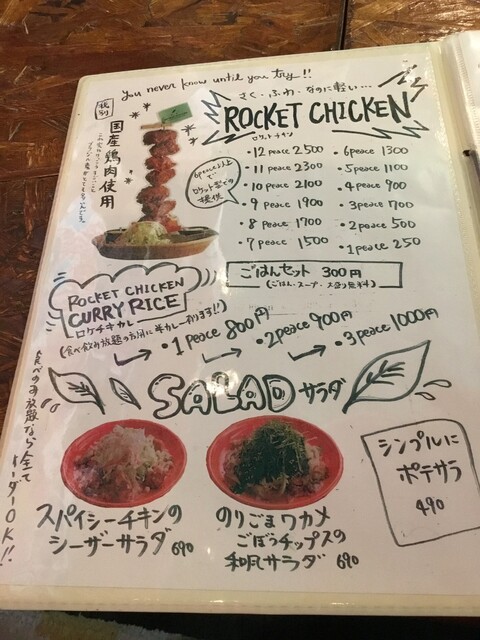 You never know until you try!!
税別
国産鶏肉使用
さく・ふわ・なのに軽い…
ROCKET CHICKEN
ロケットチキン
6peace以上で
ロケット型での
提供
・12 peace 2500
・11 peace 2300
・10 peace 2100
・9 peace 1900
・8 peace 1700
・7 peace 1500
・6peace 1300
・5peace 1100
・4peace 900
・3peace 700
・2peace 500
・1peace 250
ごはんセット 300円
(ごはん・スープ・大盛り無料)
ROCKET CHICKEN
CURRY RICE
ロケチキカレー
・1 peace 800円
・2peace 900円
・3peace 1000円
食べのみ放題なら全て
オーダーOK!!
SALAD サラダ
スパイシーチキンの
シーザーサラダ 690
のりごまワカメ
ごぼうチップスの
和風サラダ 690
シンプルに
ポテサラ
490